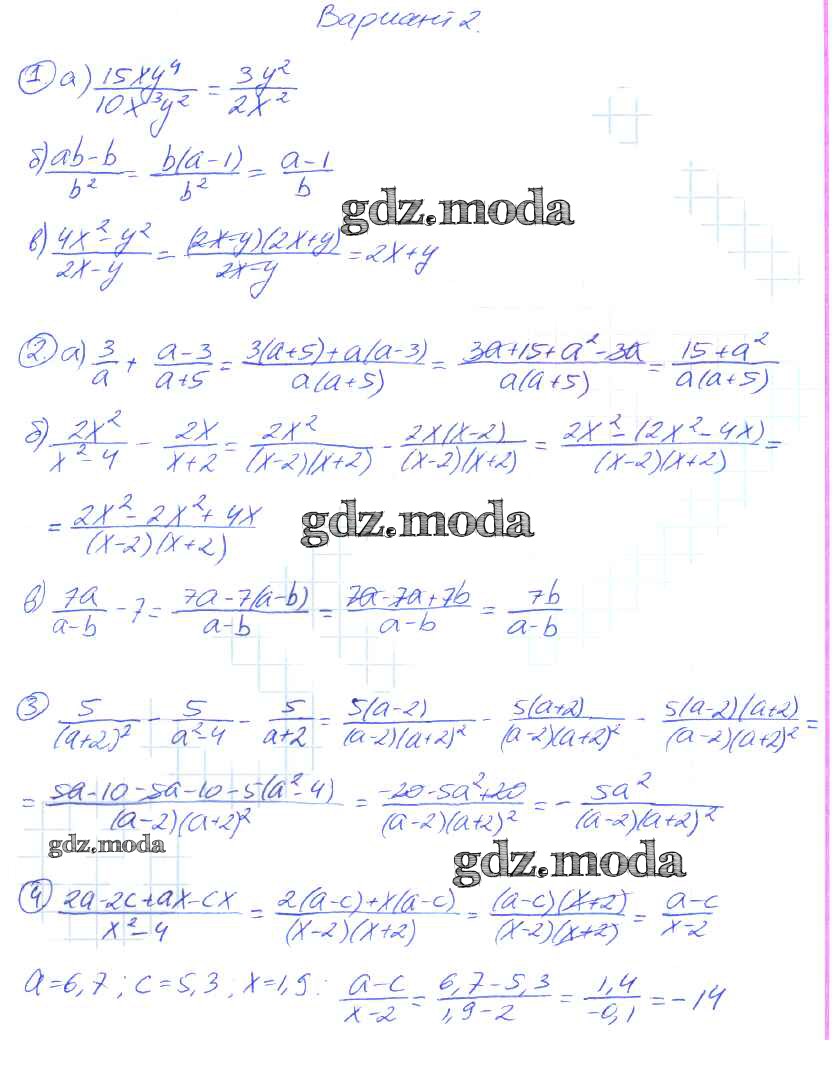 Вариант 2.
① а) 15xy⁴/10x³y² = 3y²/2x²
б) ab-b/b² = b(a-1)/b² = a-1/b
gdz.moda
в) 4x²-y²/2x-y = (2x-y)(2x+y)/2x-y = 2x+y
② а) 3/a + a-3/a+5 = 3(a+5)+a(a-3)/a(a+5) = 3a+15+a²-3a/a(a+5) = 15+a²/a(a+5)
б) 2x²/x²-4 - 2x/x+2 = 2x²/(x-2)(x+2) - 2x(x-2)/(x-2)(x+2) = 2x²-(2x²-4x)/(x-2)(x+2) =
= 2x²-2x²+4x/(x-2)(x+2) gdz.moda
в) 7a/a-b - 7 = 7a-7(a-b)/a-b = 7a-7a+7b/a-b = 7b/a-b
③ 5/(a+2)² - 5/a²-4 - 5/a+2 = 5(a-2)/(a-2)(a+2)² - 5(a+2)/(a-2)(a+2)² - 5(a-2)(a+2)/(a-2)(a+2)² =
= 5a-10-5a-10-5(a²-4)/(a-2)(a+2)² = -20-5a²+20/(a-2)(a+2)² = - 5a²/(a-2)(a+2)²
gdz.moda gdz.moda
④ 2a-2c+ax-cx/x²-4 = 2(a-c)+x(a-c)/(x-2)(x+2) = (a-c)(x+2)/(x-2)(x+2) = a-c/x-2
a=6,7; c=5,3; x=1,9: a-c/x-2 = 6,7-5,3/1,9-2 = 1,4/-0,1 = -14